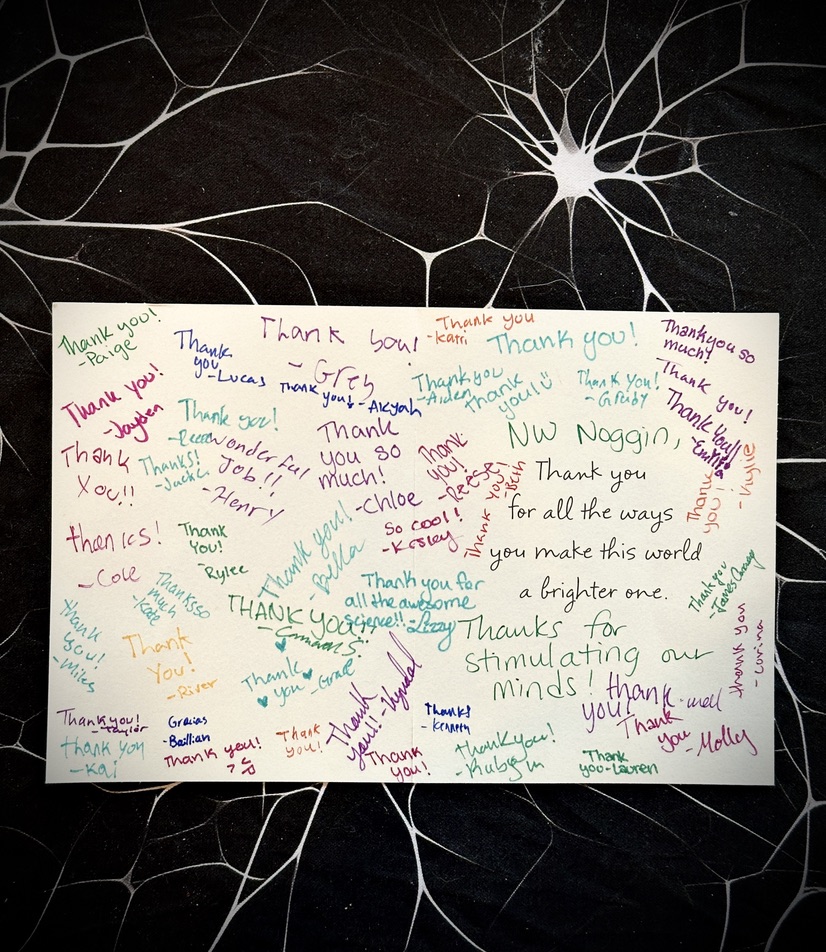 Thank you!
-Paige
Thank
you
-Lucas
Thank you!
- Grey
Thank you
-Katri
Thank you!
Thank you so
much!
Thank you!
-Jayden
Thank you! -Akyah
Thank you
-Aiden
thank
you!
Thank You!
-Grady
Thank you!
Thank You!!
-Emilia
Thank you!
-Reece
Wonderful
Job!!
-Henry
Thank
you so
much!
-Chloe
Thank
You!!
Thanks!
Thank
you!
-Reese
Thank you!
-Beth
NW Noggin,
Thank you
for all the ways
you make this world
a brighter one.
Thanks for
stimulating our
minds!
Thank
you!
-Kylie
So cool!!
-Kesley
thanks!
-Cole
Thank
You!
-Rylee
Thank you!
-Bella
Thanks so
much
-Kate
Thank you for
all the awesome
science!! -Lizzy
THANK YOU!!
Thank you
thank
you!
-Miles
Thank
You!
-River
Thank
you -Grace
Thank
you!!
thank
you!
Thank you
-Corina
Thank you!
-Taylor
Gracias
-Bailian
Thank
you!
Thanks
-Kenneth
Thank
you
-Molly
thank you
-Kai
Thank you!
Thank
you!
thank you!
Thank
you -Lauren